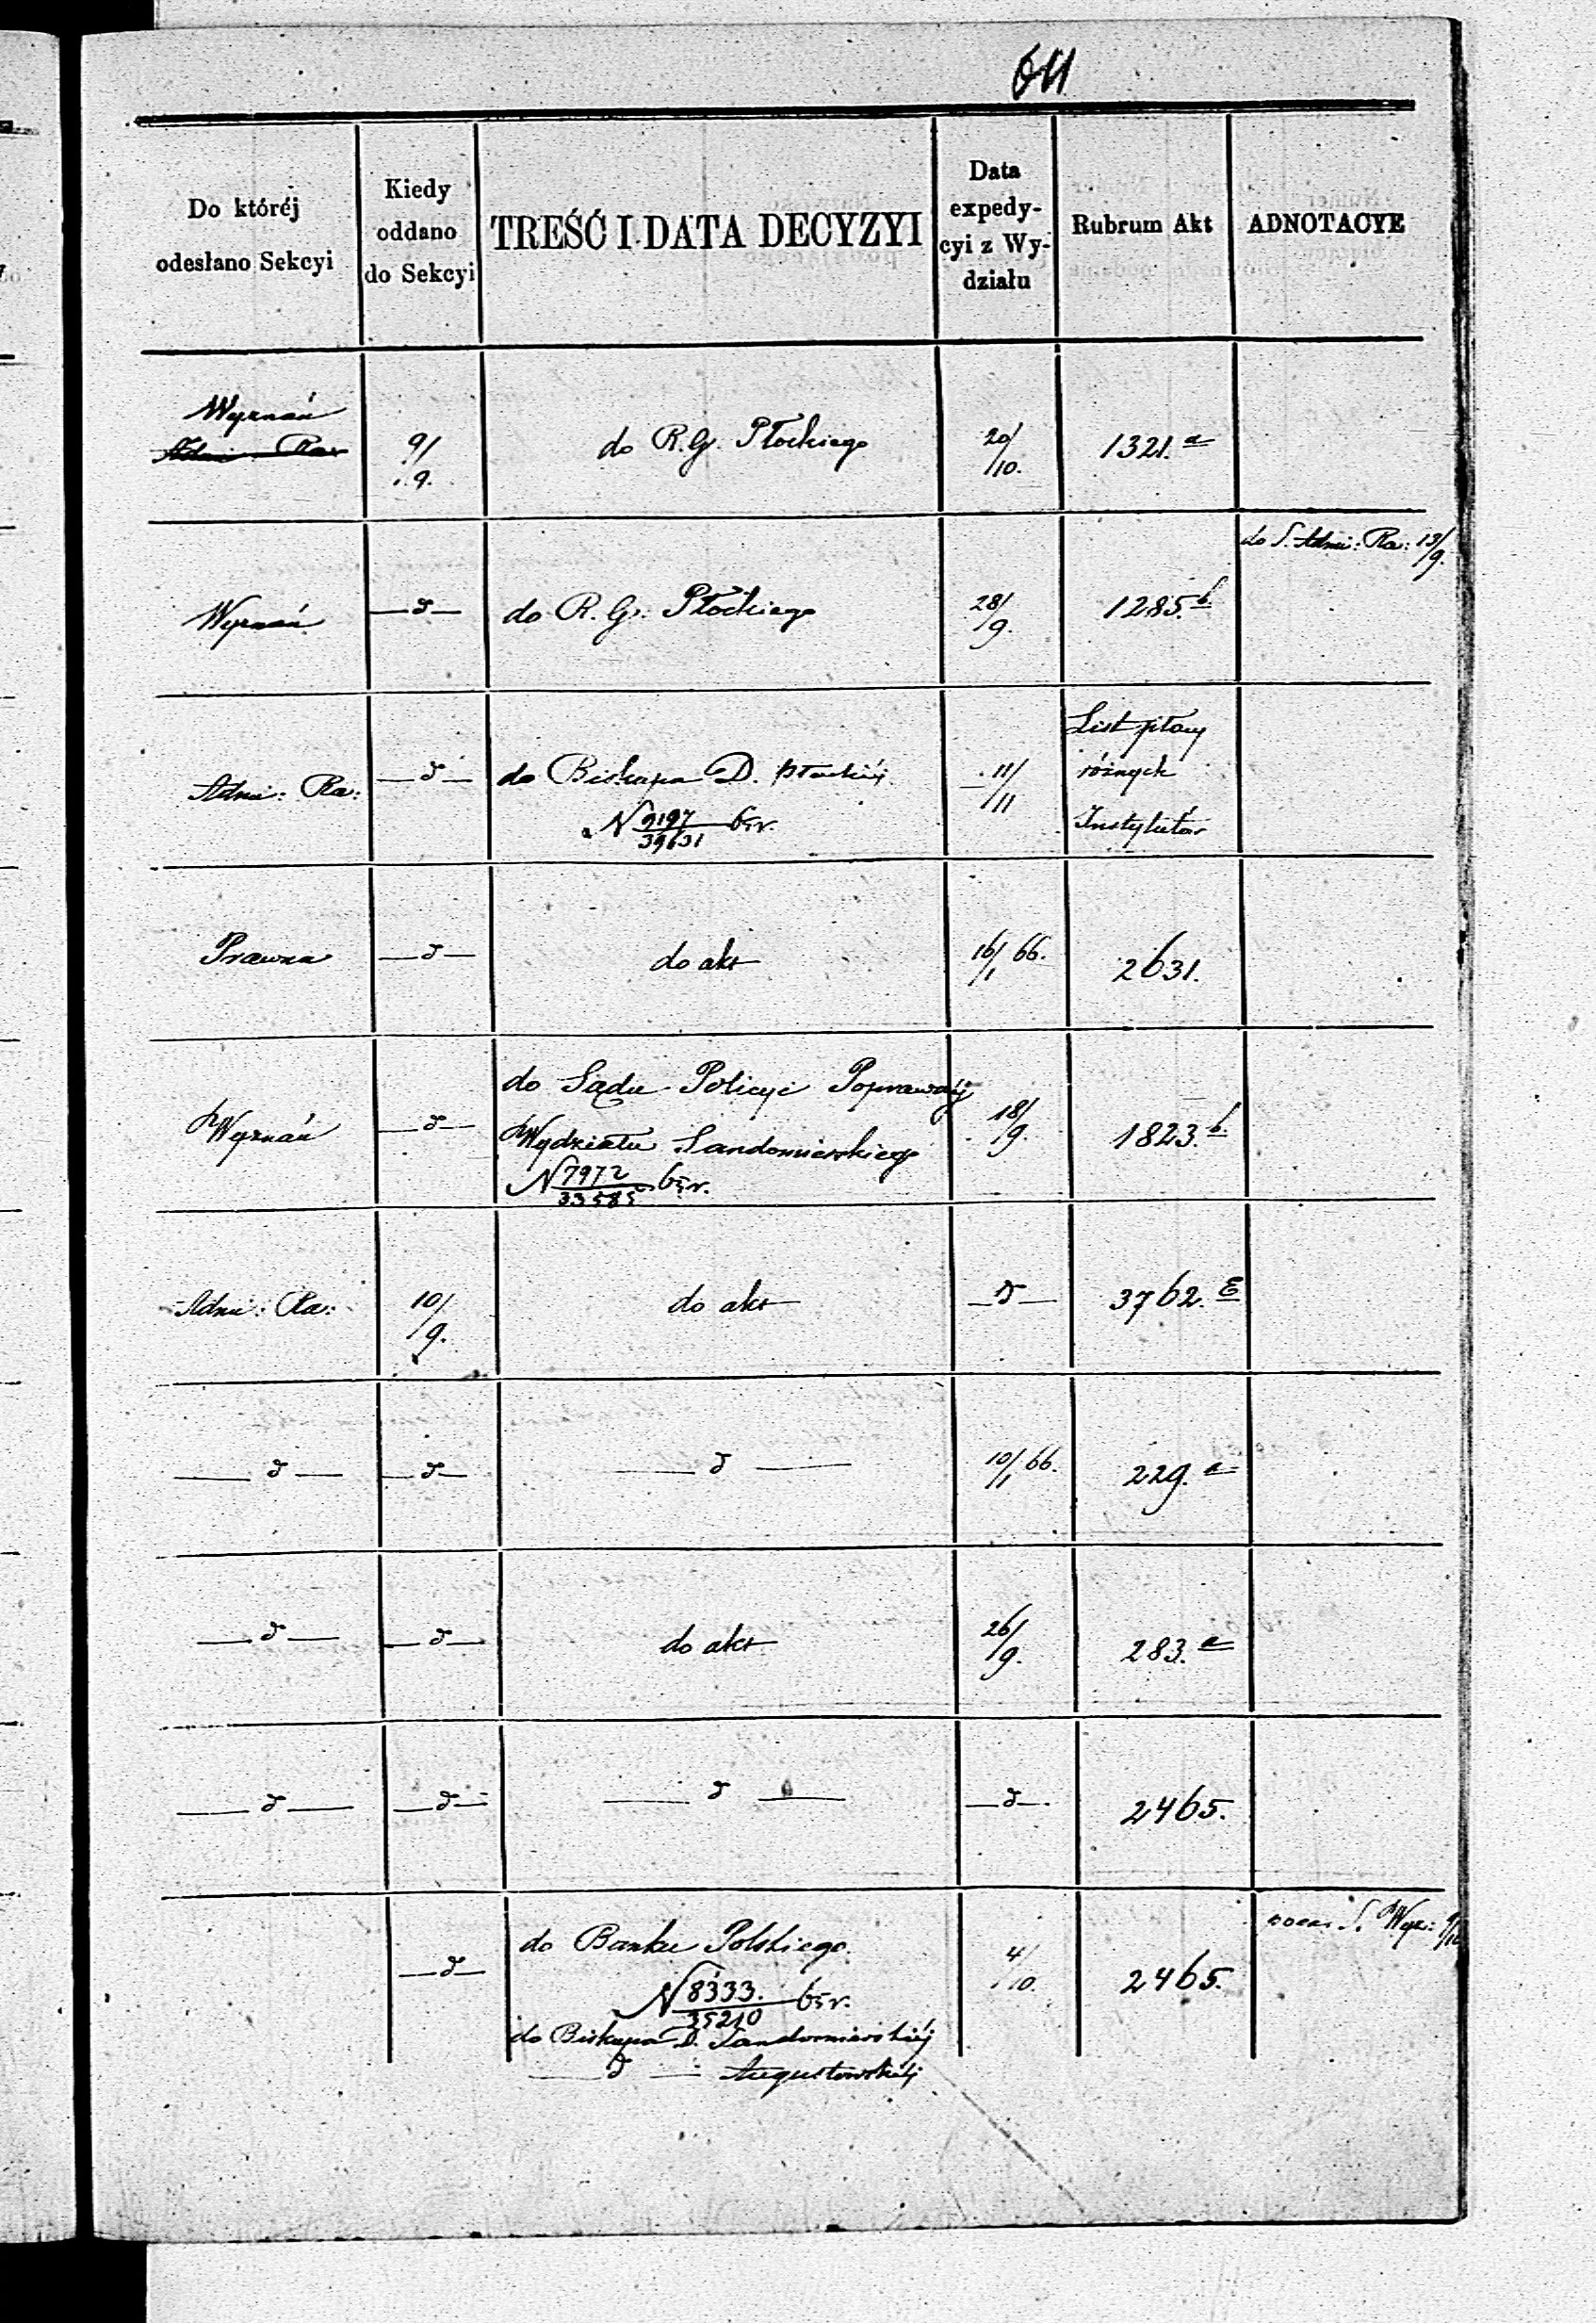 611
Do któréj odesłano Sekcyi
Kiedy oddano do Sekcyi
TREŚĆ I DATA DECYZYI
Data expedycyi z Wydziału
Rubrum Akt
ADNOTACYE
Wyznań
Adm: Ra: 9/9. do R. G. Płockiego 20/10. 1321.a
do S. Adm: Ra: 13/9.
Wyznań —d— do R. G. Płockiego 28/9. 1285.b
List płacy
Adm: Ra: —d— do Biskupa D. Płockiéj 11/11 różnych
N 9197/39631 65r. Instytutów
Prawna —d— do akt 16/1 66. 2631.
do Sądu Policyi Poprawczéj
Wyznań —d— Wydziału Sandomierskiego 18/9. 1823.b
N 7972/33585 65r.
Adm: Ra: 10/9. do akt —d— 3762.E
—d— —d— —d— 10/1 66. 229.a
—d— —d— do akt 26/9. 283.a
—d— —d— —d— —d— 2465.
S. Wyz:
—d— do Banku Polskiego 4/10. 2465.
N 8333./35210 65r.
do Biskupa D. Sandomierskiéj
—d— Augustowskiéj